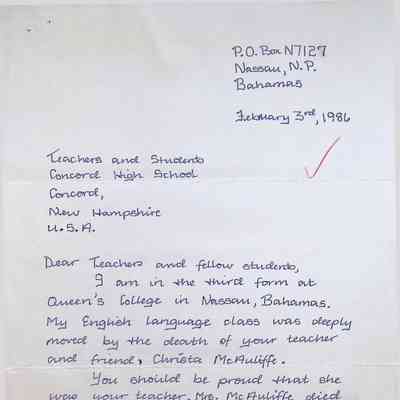 P.O. Box N7127
Nassau, N.P.
Bahamas
February 3rd, 1986
Teachers and Students
Concord High School
Concord,
New Hampshire
U.S.A.
Dear Teachers and fellow students,
I am in the third form at
Queen's College in Nassau, Bahamas.
My English Language class was deeply
moved by the death of your teacher
and friend, Christa McAuliffe.
You should be proud that she
was your teacher. Mrs. McAuliffe died